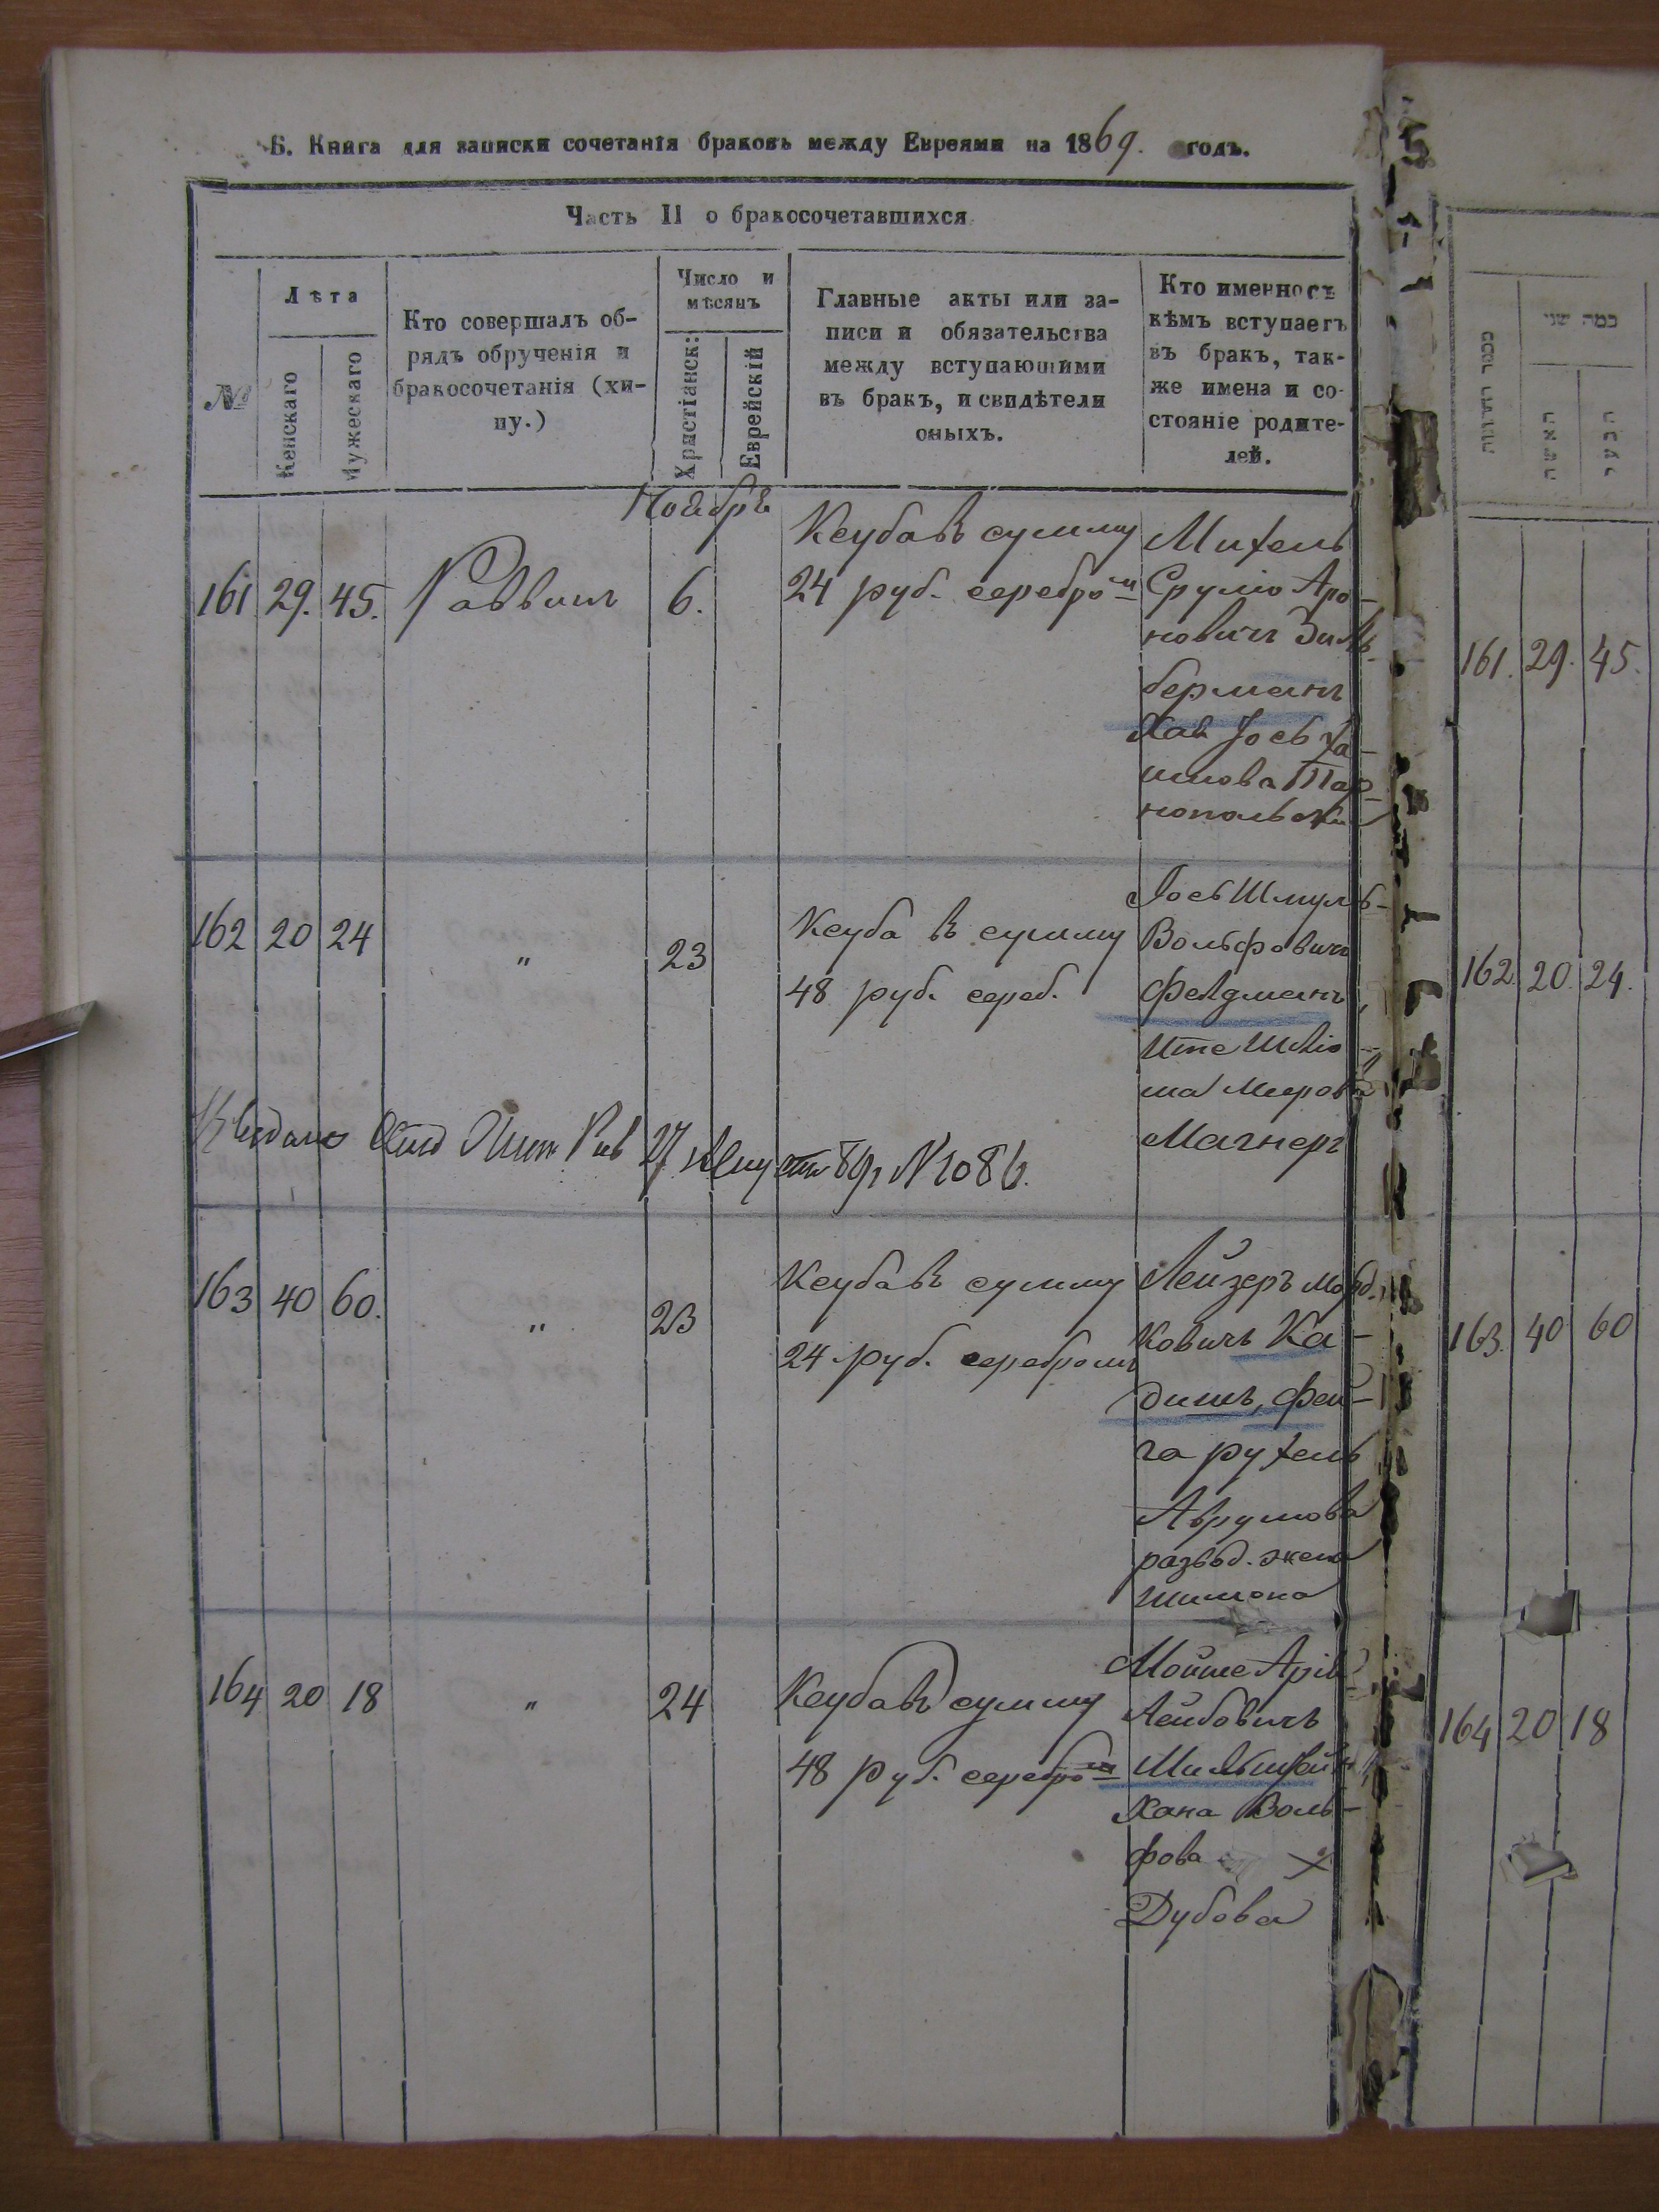 Б. Книга для записки сочетанія браковъ между Евреями на 1869. годъ.
Часть II о бракосочетавшихся
№
Лѣта
Женскаго
Мужескаго
Кто совершалъ об-
рядъ обрученія и
бракосочетанія (хи-
пу.)
Число и
мѣсяцъ
Христіанск:
Еврейскій
Главные акты или за-
писи и обязательства
между вступающими
въ бракъ, и свидѣтели
оныхъ.
Кто именно съ
кѣмъ вступаетъ
въ бракъ, так-
же имена и со-
стояніе родите-
лей.
Ноябрь
161 29. 45. Раввинъ 6.
Кеуба въ сумму
24 руб. серебром
Михель
Срулiо Аро-
новичъ Зиль-
берманъ
Хая Іось Ха-
имова Тар-
нопольск
162 20 24 " 23
Кеуба въ сумму
48 руб. сереб.
Іось Шмуль-
Вольфовичъ
Фелдманъ,
Ите Шлiо-
ма Меерова
Магнеръ
27 Августа 89 г N 1086.
163 40 60. " 23
Кеуба въ сумму
24 руб. серебромъ
Лейзеръ Морд.
ковичъ Ка-
дишъ, Фей-
га рухель
Аврумова
развод. жена
Шимона
164 20 18 " 24
Кеуба въ сумму
48 руб. серебром
Мойше Арiе
Лейбовичъ
Мильштейн
Хана Воль-
фова
Дубова
כמה שני
האשה
הבעל
161. 29. 45.
162. 20. 24.
163. 40 60
164 20 18